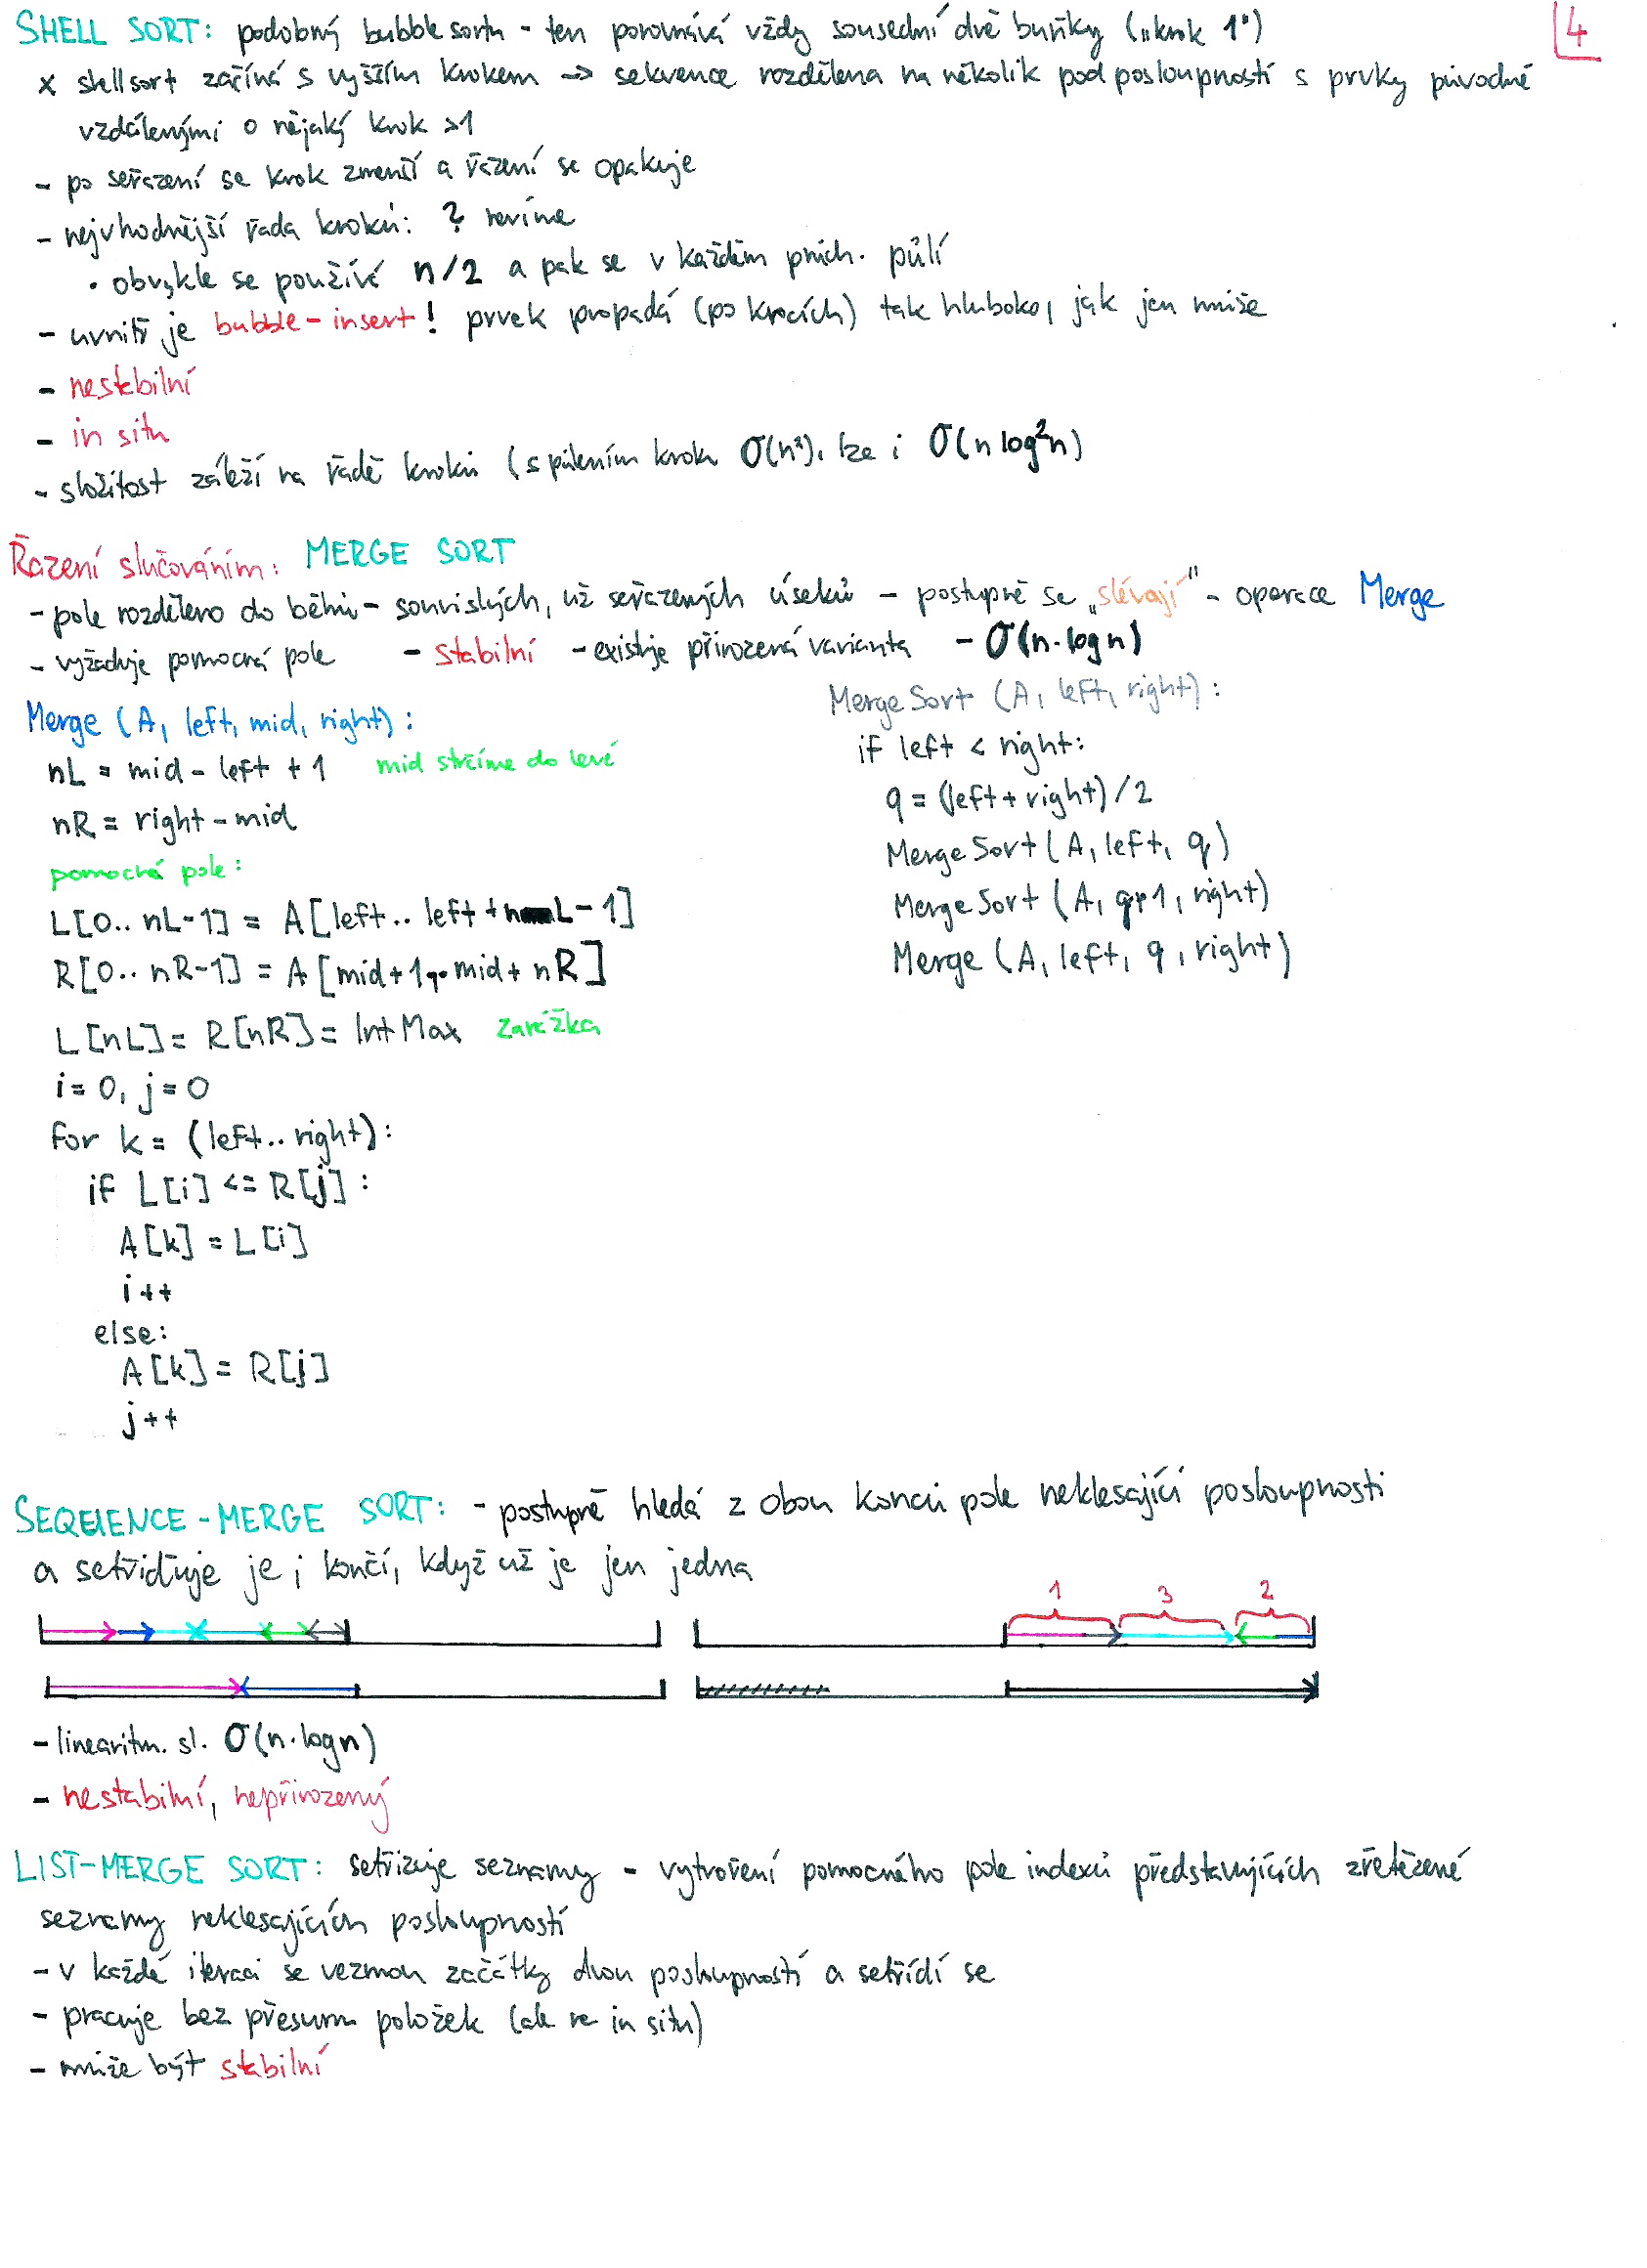 4
SHELL SORT: podobný bubble sortu - ten porovnává vždy sousední dvě buňky („krok 1")
x shellsort začíná s vyšším krokem -> sekvence rozdělena na několik podposloupností s prvky původně
vzdálenými o nějaký krok >1
- po seřazení se krok zmenší a řazení se opakuje
- nejvhodnější řada kroků: ? nevíme
• obvykle se používá n/2 a pak se v každém průch. půlí
- uvnitř je bubble-insert! prvek propadá (po krocích) tak hluboko, jak jen může
- nestabilní
- in situ
- složitost záleží na řadě kroků (s půlením kroku O(n²), lze i O(n log²n)
Řazení slučováním: MERGE SORT
- pole rozděleno do běhů - souvislých, už seřazených úseků - postupně se „slévají" - operace Merge
- vyžaduje pomocná pole - stabilní - existuje přirozená varianta - O(n·log n)
Merge (A, left, mid, right):
nL = mid - left + 1 mid strčíme do levé
nR = right - mid
pomocná pole:
L[0.. nL-1] = A[left.. left + nL-1]
R[0.. nR-1] = A[mid+1.. mid + nR]
L[nL] = R[nR] = IntMax zarážka
i = 0, j = 0
for k = (left.. right):
if L[i] <= R[j]:
A[k] = L[i]
i++
else:
A[k] = R[j]
j++
MergeSort (A, left, right):
if left < right:
q = (left + right)/2
MergeSort (A, left, q)
MergeSort (A, q+1, right)
Merge (A, left, q, right)
SEQUENCE-MERGE SORT: - postupně hledá z obou konců pole neklesající posloupnosti
a setřiďuje je; končí, když už je jen jedna
1 3 2
- linearitm. sl. O(n·log n)
- nestabilní, nepřirozený
LIST-MERGE SORT: setřizuje seznamy - vytvoření pomocného pole indexů představujících zřetězené
seznamy neklesajících posloupností
- v každé iteraci se vezmou začátky dvou posloupností a setřídí se
- pracuje bez přesunu položek (ale ne in situ)
- může být stabilní